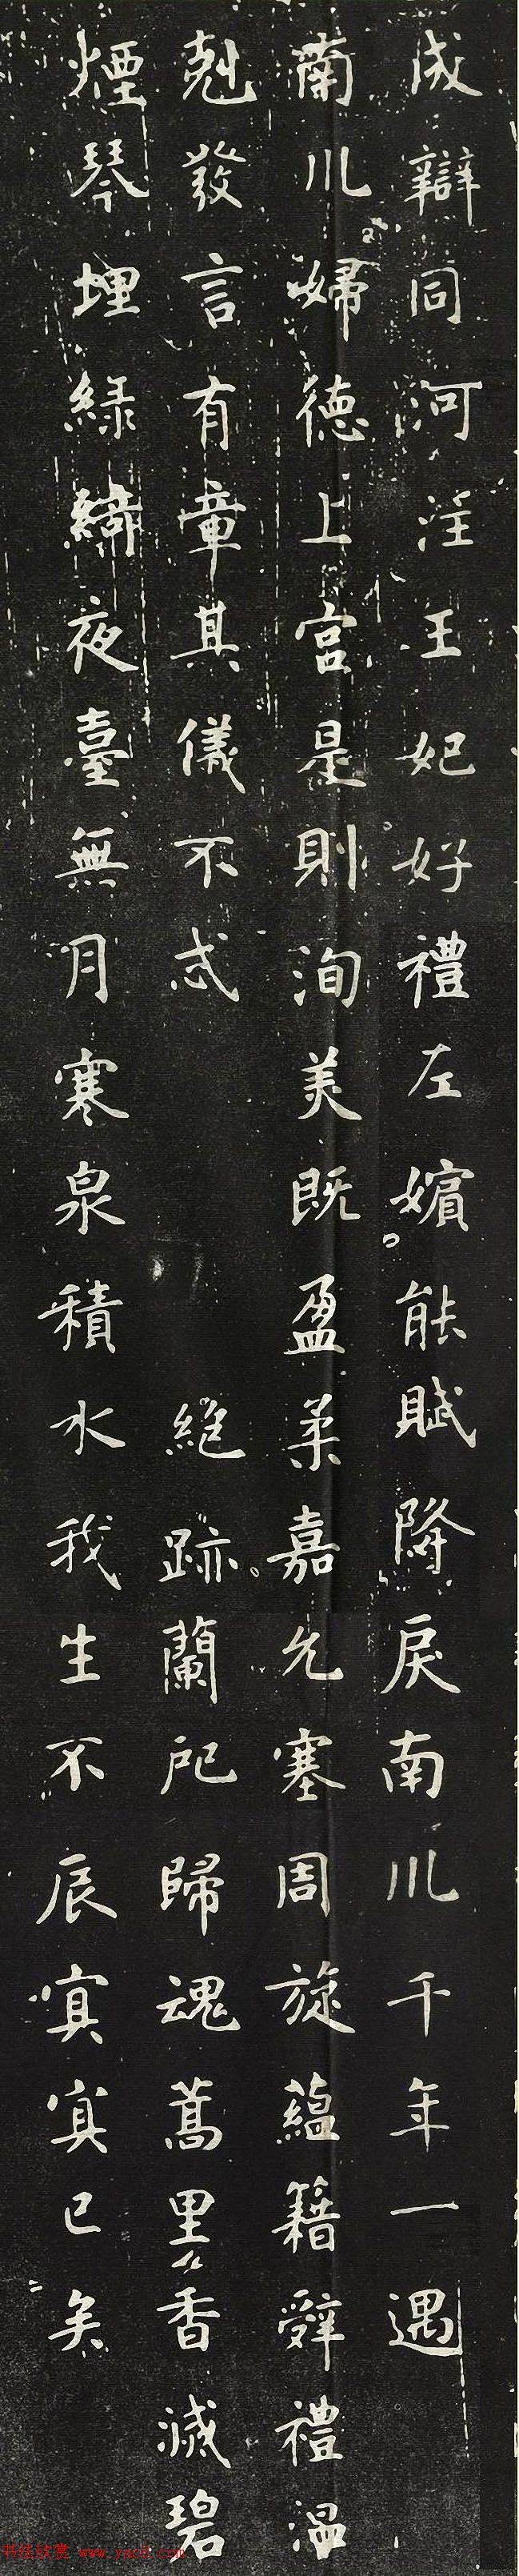 成辯同河洼王妃好禮左嬪能賦降戾南川千年一遇
南川婦德上宮是則洵美既盈柔嘉允塞周旋蘊籍辭禮溫
剋發言有章其儀不忒 絕跡蘭阤歸魂蒿里香滅碧
煙琴埋綠綺夜臺無月寒泉積水我生不辰寘寘已矣
书法欣赏 www.yac8.com